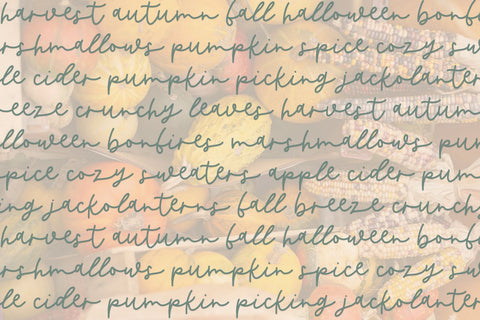 harvest autumn fall halloween bonfi
arshmallows pumpkin spice cozy sw
le cider pumpkin picking jackolanter
reeze crunchy leaves harvest autum
lloween bonfires marshmallows pum
spice cozy sweaters apple cider pum
ing jackolanterns fall breeze crunchy
harvest autumn fall halloween bonfi
arshmallows pumpkin spice cozy sw
le cider pumpkin picking jackolanter